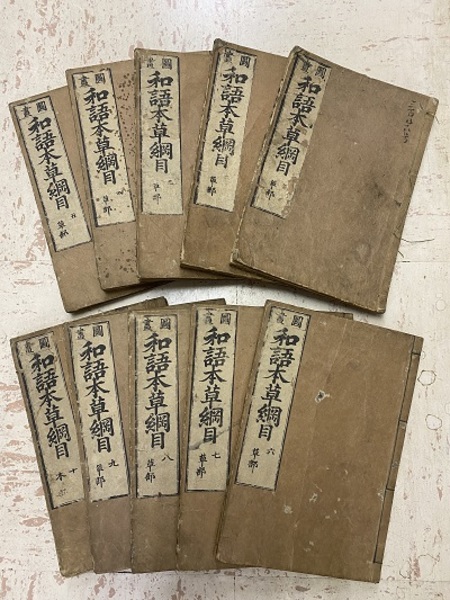 圖畫
和語本草綱目
草部
圖畫
和語本草綱目
草部
圖畫
和語本草綱目
草部
圖畫
和語本草綱目
草部
圖畫
和語本草綱目
五
草部
圖畫
和語本草綱目
六
草部
圖畫
和語本草綱目
七
草部
圖畫
和語本草綱目
八
草部
圖畫
和語本草綱目
九
草部
圖畫
和語本草綱目
十
木